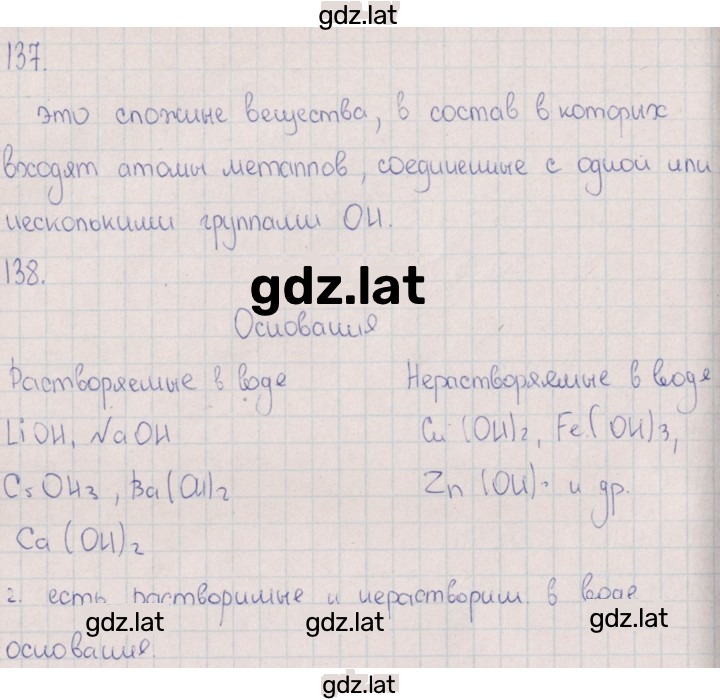 gdz.lat
137.
это сложные вещества, в состав в которых
входят атомы металлов, соединенные с одной или
несколькими группами OH.
138.
gdz.lat
Основания
Растворяемые в воде Нерастворяемые в воде
LiOH, NaOH Cu(OH)2, Fe(OH)3,
CsOH3, Ba(OH)2 Zn(OH)2 и др.
Ca(OH)2
2. есть растворимые и нерастворим. в воде
gdz.lat gdz.lat gdz.lat
основания.
gdz.lat